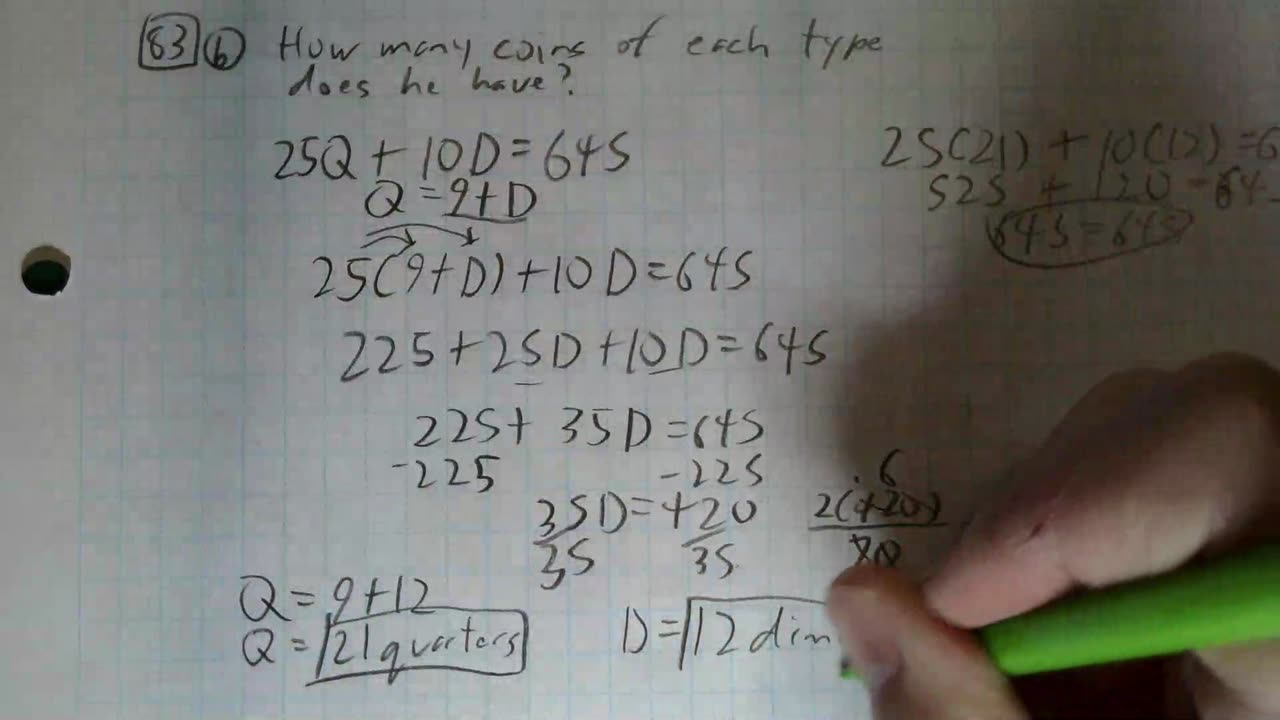 83 (b) How many coins of each type
does he have?
25Q + 10D = 645
Q = 9 + D
25(9 + D) + 10D = 645
225 + 25D + 10D = 645
225 + 35D = 645
-225 -225
35D = 420
35 35
Q = 9 + 12
Q = 21 quarters
D = 12 dim
25(21) + 10(12) = 6
525 + 120 = 645
645 = 645
6
2(420)
70